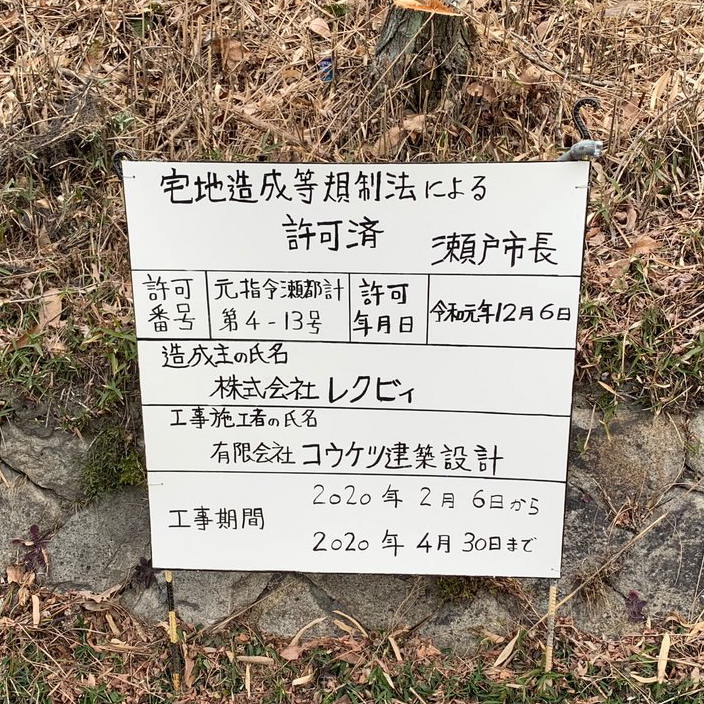 宅地造成等規制法による
許可済 瀬戸市長
許可番号 元指令瀬都計第4-13号 許可年月日 令和元年12月6日
造成主の氏名
株式会社 レクビィ
工事施工者の氏名
有限会社 コウケツ建築設計
工事期間 2020年2月6日から
2020年4月30日まで